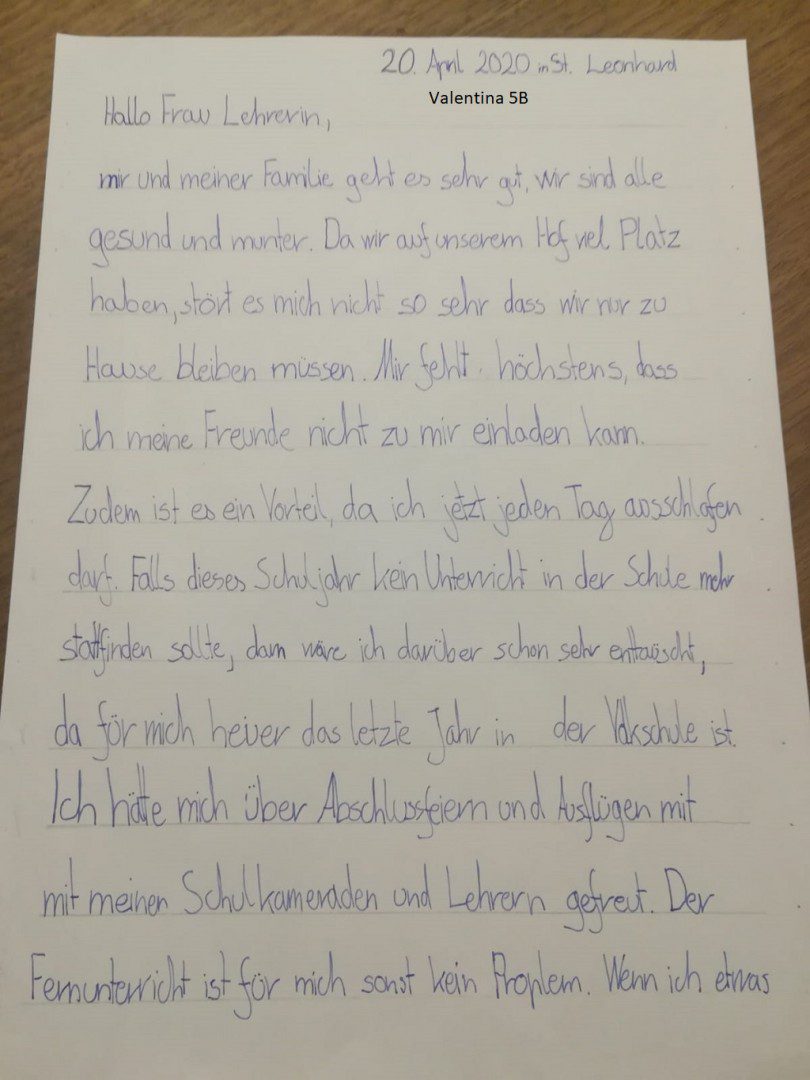 20. April 2020 in St. Leonhard
Valentina 5B
Hallo Frau Lehrerin,
mir und meiner Familie geht es sehr gut, wir sind alle
gesund und munter. Da wir auf unserem Hof viel Platz
haben, stört es mich nicht so sehr dass wir nur zu
Hause bleiben müssen. Mir fehlt höchstens, dass
ich meine Freunde nicht zu mir einladen kann.
Zudem ist es ein Vorteil, da ich jetzt jeden Tag ausschlafen
darf. Falls dieses Schuljahr kein Unterricht in der Schule mehr
stattfinden sollte, dann wäre ich darüber schon sehr enttäuscht,
da für mich heuer das letzte Jahr in der Volkschule ist.
Ich hätte mich über Abschlussfeiern und Ausflügen mit
mit meinen Schulkameraden und Lehrern gefreut. Der
Fernunterricht ist für mich sonst kein Proplem. Wenn ich etwas